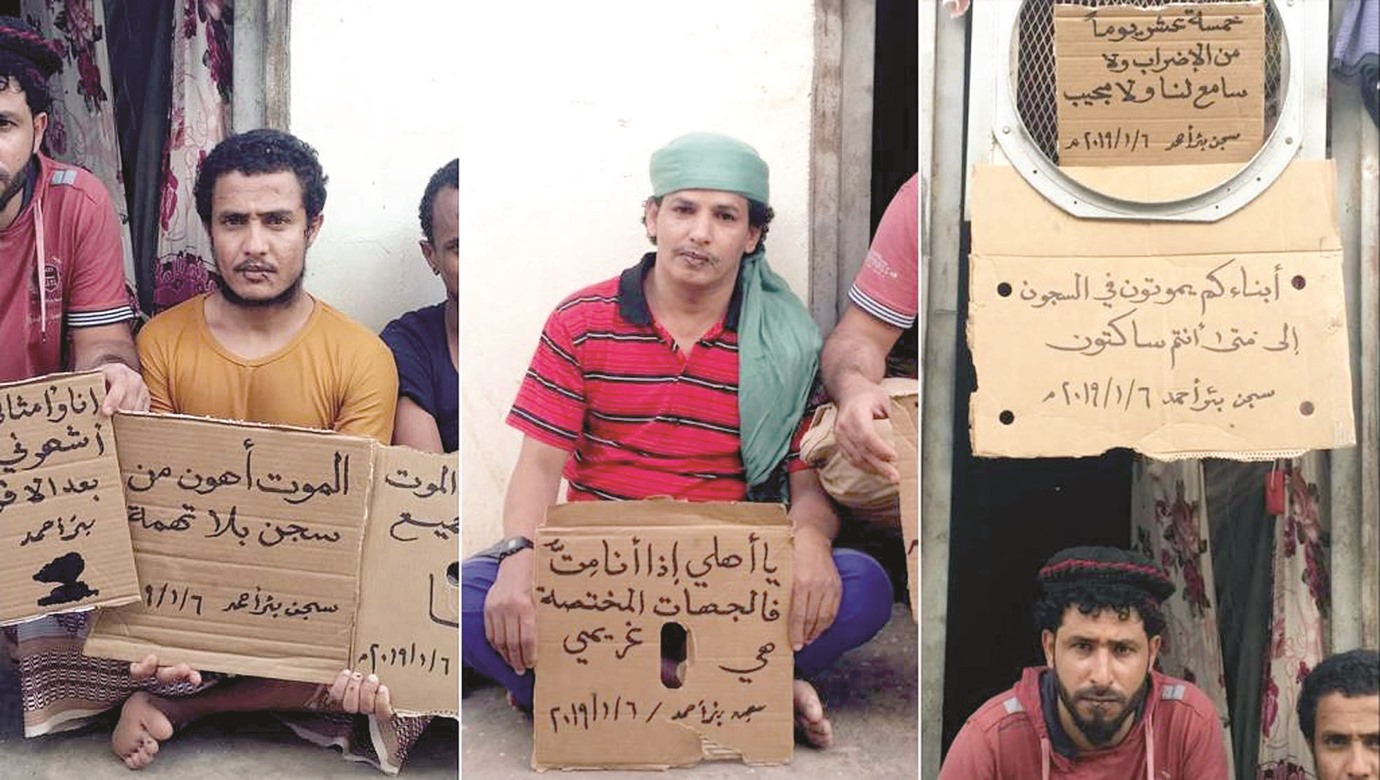 انا وأمثالي
أشهر في
بعد الافر
بئر أحمد
الموت أهون من
سجن بلا تهمة
سجن بئر أحمد ٩/١/٦
الموت
جميع
٢٠١٩/١/٦م
يا أهلي إذا أنا مِتُّ
فالجهات المختصة
هي غريمي
سجن بئر أحمد / ٢٠١٩/١/٦
خمسة عشر يوماً
من الإضراب ولا
سامع لنا ولا مجيب
سجن بئر أحمد ٢٠١٩/١/٦م
أبناءكم يموتون في السجون
إلى متى أنتم ساكتون
سجن بئر أحمد ٢٠١٩/١/٦م